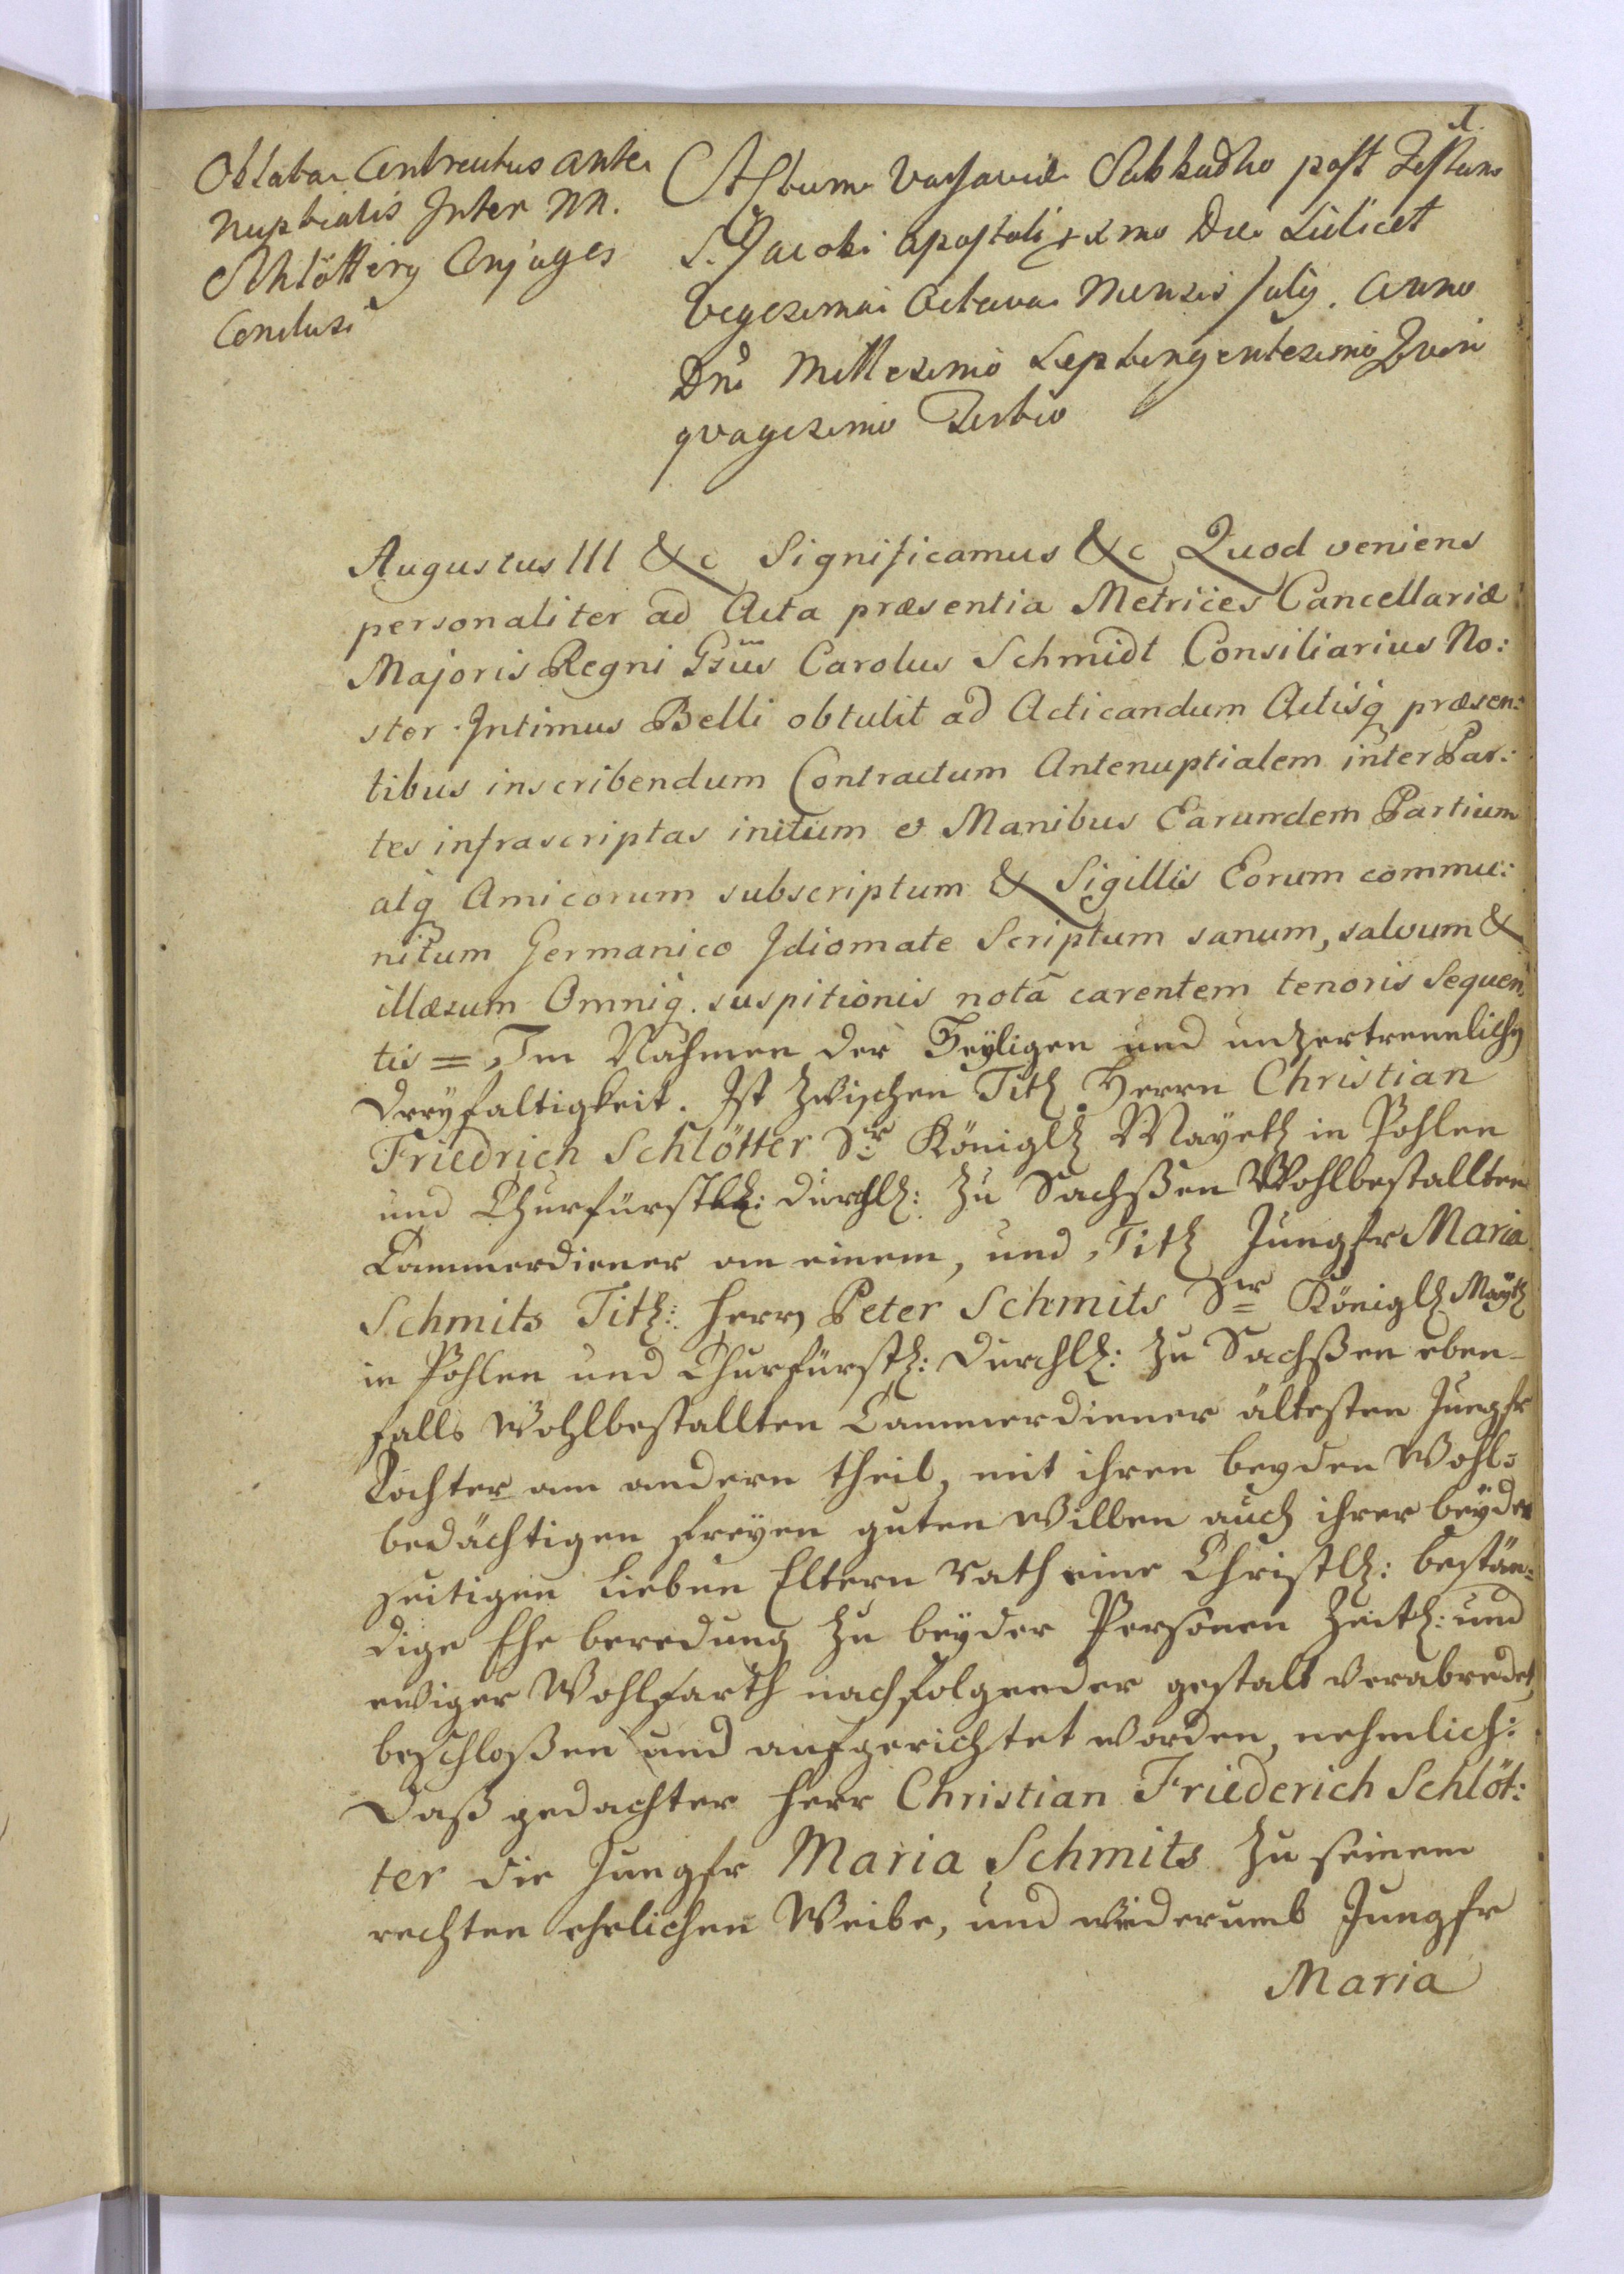 1.
Oblata Contractus ante
nuptialis Inter NN.
Schlötterÿ Conjuges
Conclusi
Actum Varsaviæ Sabbatho post Festum
S. Jacobi Apostoli xmo Die Scilicet
Vegesima Octava Mensis Julÿ. Anno
Dni Millesimo Septingentesimo Qvin
qvagesimo Tertio
Augustus III &c Significamus &c Quod veniens
personaliter ad Acta præsentia Metrices Cancellariæ
Majoris Regni Gsus Carolus Schmidt Consiliarius No:
ster Intimus Belli obtulit ad Acticandum Actisq præsen:
tibus inscribendum Contractum Antenuptialem inter Par:
tes infrascriptas initum et Manibus Earumdem Partium
atq Amicorum subscriptum & Sigillis Eorum commu:
nitum Germanico Idiomate Scriptum sanum, salvum &
illæsum Omniq. suspitionis notâ carentem tenoris Sequen
tis = Im Nahmen der Heyligen und unzertrennlichen
Dreyfaltigkeit. Ist zwischen Tit. Herrn Christian
Friedrich Schlötter Sr. Königl. Mayet. in Pohlen
und Churfürstl.: Durchl.: zu Sachßen Wohlbestallten
Cammerdiener an einem, und Tit. Jungfr Maria
Schmits Tit.: Herrn Peter Schmits Sr Königl. Mayt.
in Pohlen und Churfürst.: Durchl.: zu Sachßen eben-
falls Wohlbestallten Cammerdiener ältesten Jungfr
Tochter am andern theil, mit ihren beyden Wohl=
bedächtigen freyen guten Willen auch ihrer beyder
seitigen lieben Eltern rath eine Christl.: bestän:
dige Ehe beredung zu beyder Personen Zeitl.: und
ewiger Wohlfarth nachfolgender gestalt verabredet,
beschloßen und aufgerichtet worden, nehmlich:
Daß gedachter Herr Christian Friederich Schlöt:
ter die Jungfr Maria Schmits zu seinem
rechten ehelichen Weibe, und wiederumb Jungfr
Maria